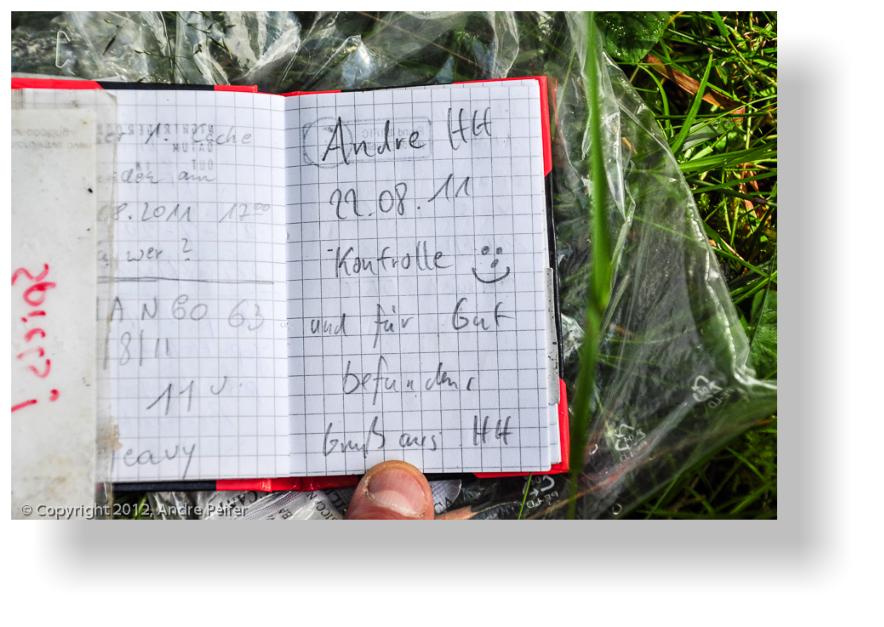 am
08.2011 12⁰⁰
wer ?
AN 60 63
/8/11
11 U.
eavy
Andre HH
22.08.11
Kontrolle
und für Gut
befunden
Gruß aus HH
© Copyright 2012, Andre Peifer